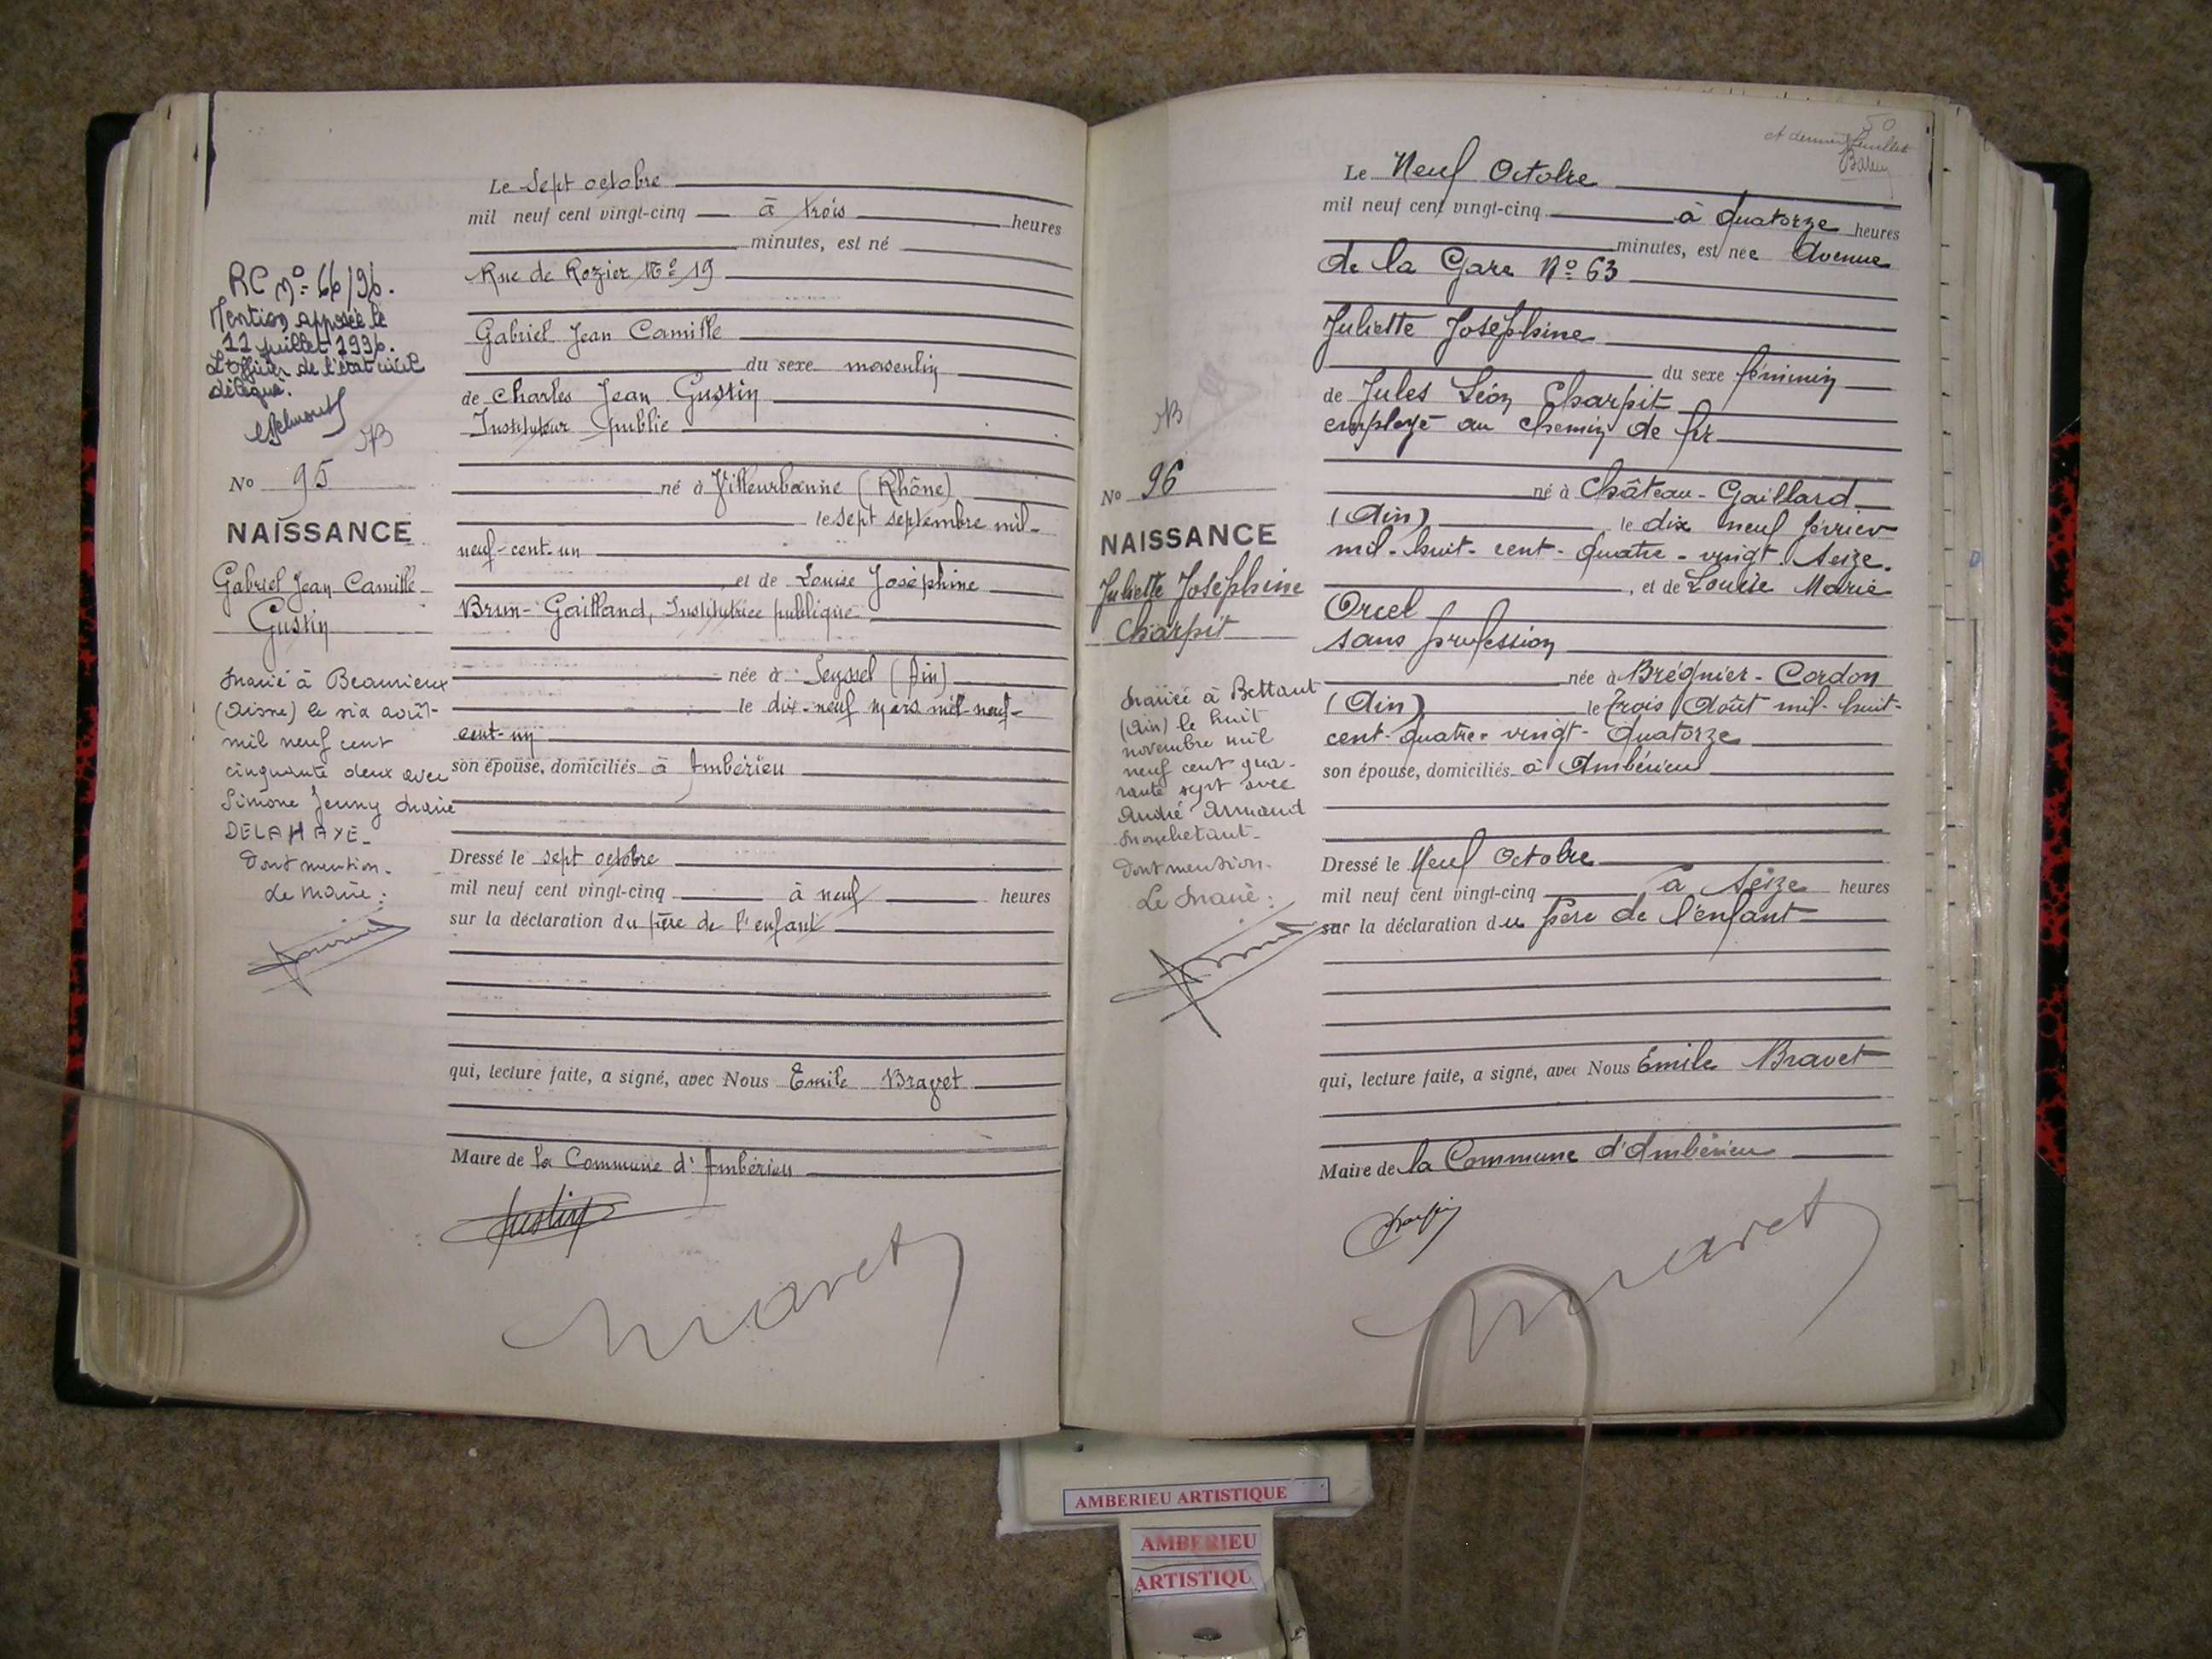 RC nº 66/96.
Mention apposée le
11 juillet 1996.
L'Officier de l'état civil
délégué.
No 95
NAISSANCE
Gabriel Jean Camille
Gustin
Marié à Beaurieux
(Aisne) le six août
mil neuf cent
cinquante deux avec
Simone Jenny Marie
DELAHAYE_
Dont mention.
Le Maire :
Le Sept octobre
mil neuf cent vingt-cinq à trois heures
minutes, est né
Rue de Rozier Nº 19
Gabriel Jean Camille
du sexe masculin
de Charles Jean Gustin
Instituteur public
né à Villeurbanne (Rhône)
le sept septembre mil-
neuf-cent-un
et de Louise Joséphine
Brun-Gailland, Institutrice publique
née à Seyssel (Ain)
le dix-neuf mars mil neuf-
cent-un
son épouse, domiciliés à Ambérieu
Dressé le sept octobre
mil neuf cent vingt-cinq à neuf heures
sur la déclaration du père de l'enfant
qui, lecture faite, a signé, avec Nous Emile Bravet
Maire de la Commune d'Ambérieu
Gustin
50
et dernier feuillet
No 96
NAISSANCE
Juliette Joséphine
Charpit
Mariée à Bettant
(Ain) le huit
novembre mil
neuf cent qua-
rante sept avec
André Armand
Mouchetant_
Dont mention.
Le Maire :
Le Neuf Octobre
mil neuf cent vingt-cinq à Quatorze heures
minutes, est née Avenue
de la Gare Nº 63
Juliette Joséphine
du sexe féminin
de Jules Léon Charpit
employé au chemin de fer
né à Château-Gaillard
(Ain), le dix neuf février
mil-huit-cent-quatre-vingt-seize.
, et de Louise Marie
Orcel
sans profession
née à Brégnier-Cordon
(Ain) le Trois Août mil-huit-
cent-quatre-vingt-Quatorze
son épouse, domiciliés à Ambérieu
Dressé le Neuf Octobre
mil neuf cent vingt-cinq à Seize heures
sur la déclaration du père de l'enfant
qui, lecture faite, a signé, avec Nous Emile Bravet
Maire de la Commune d'Ambérieu
AMBERIEU ARTISTIQUE
AMBERIEU
ARTISTIQU